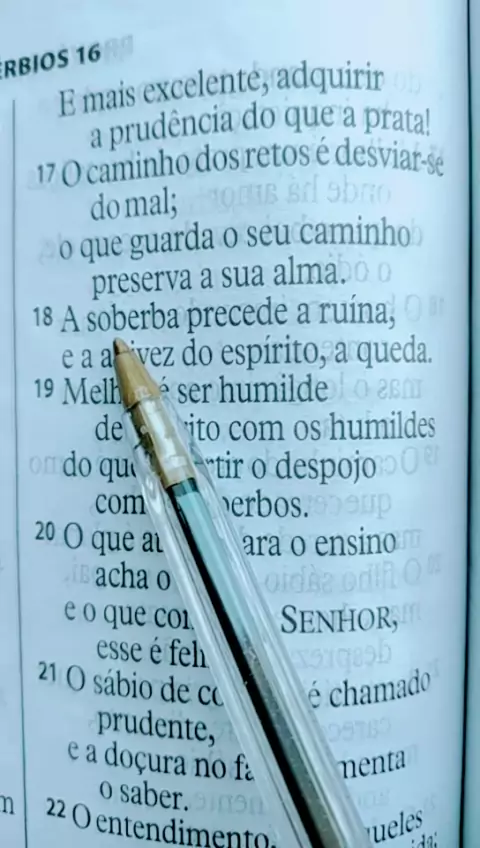 ÉRBIOS 16
E mais excelente, adquirir
a prudência do que a prata!
17 O caminho dos retos é desviar-se
do mal;
o que guarda o seu caminho
preserva a sua alma.
18 A soberba precede a ruína,
e a a vez do espírito, a queda.
19 Melh é ser humilde
de rito com os humildes
do que rtir o despojo
com erbos.
20 O que at ara o ensino
acha o
e o que con SENHOR,
esse é feli
21 O sábio de co é chamado
prudente,
e a doçura no fa menta
o saber.
22 O entendimento, queles